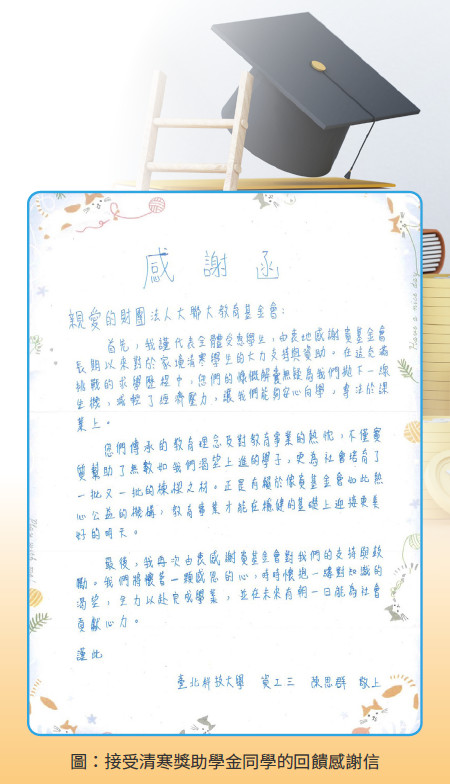 感謝函
親愛的財團法人大聯大教育基金會：
首先，我謹代表全體受惠學生，由衷地感謝貴基金會
長期以來對於家境清寒學生的大力支持與贊助。在這充滿
挑戰的求學歷程中，您們的慷慨解囊無疑為我們拋下一線
生機，減輕了經濟壓力，讓我們能夠安心向學，專注於課
業上。
您們傳承的教育理念及對教育事業的熱忱，不僅實
質幫助了無數如我們渴望上進的學子，更為社會培育了
一批又一批的棟樑之材。正是有賴於像貴基金會如此熱
心公益的機構，教育事業才能在穩健的基礎上迎接更美
好的明天。
最後，我再次由衷感謝貴基金會對我們的支持與鼓
勵。我們將懷著一顆感恩的心，時時懷抱一縷對知識的
渴望，全力以赴完成學業，並在未來有朝一日能為社會
貢獻心力。
謹此
臺北科技大學 資工三 陳思群 敬上
Have a nice day
圖：接受清寒獎助學金同學的回饋感謝信